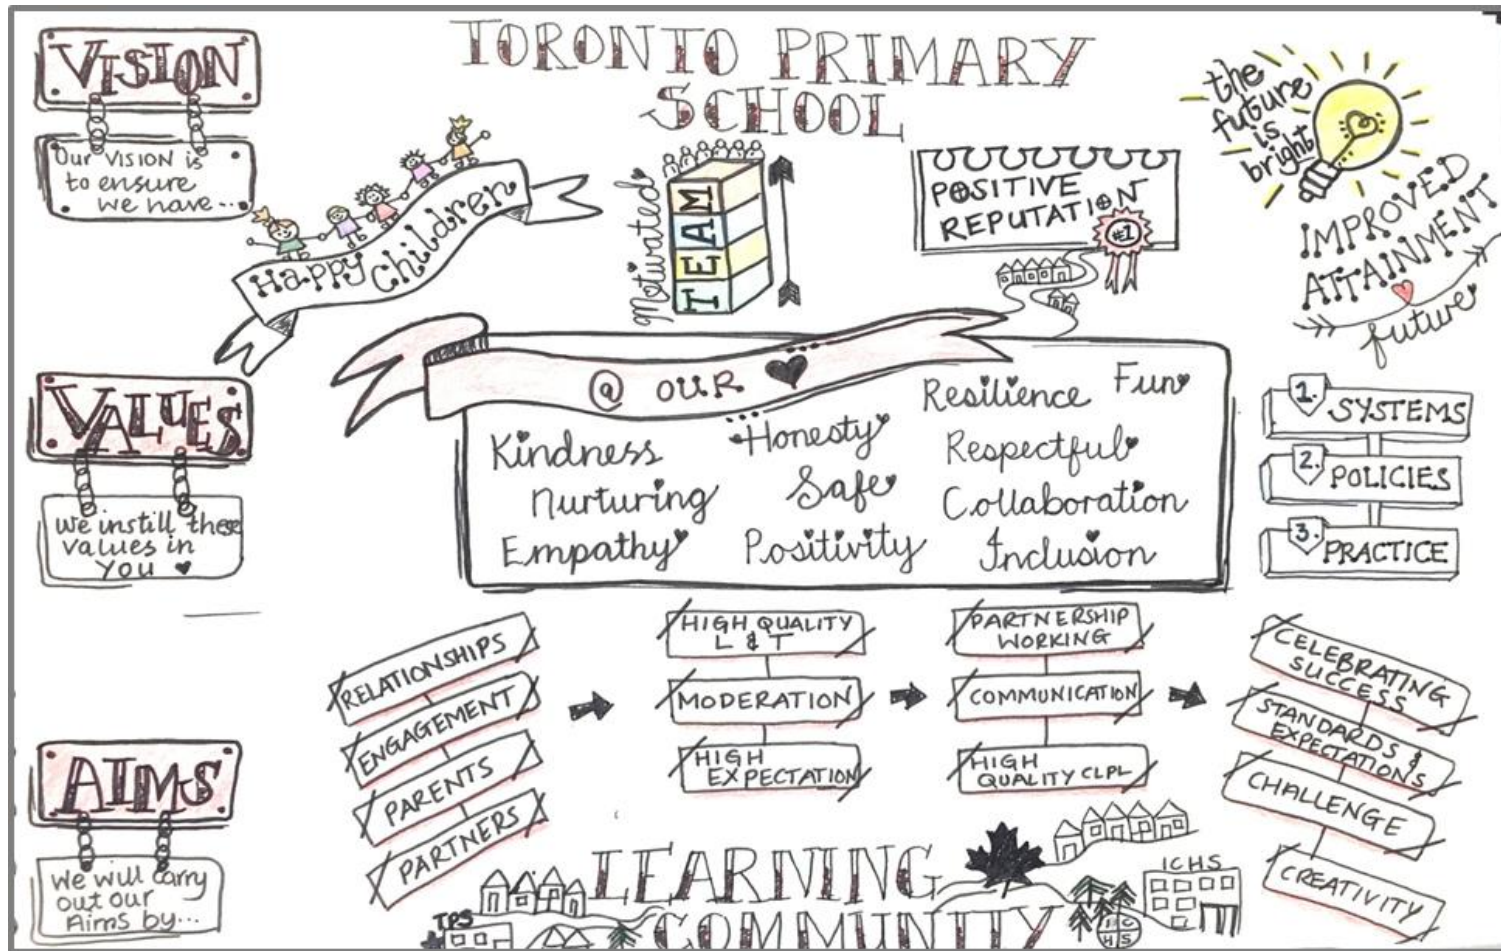 TORONTO PRIMARY
SCHOOL
VISION
Our VISION is
to ensure
we have...
Happy children
Motivated
TEAM
POSITIVE
REPUTATION
#1
the
future
is
bright
IMPROVED
ATTAINMENT
future
VALUES
We instill these
values in
you
@ OUR
Resilience Fun
Kindness Honesty Respectful
Nurturing Safe Collaboration
Empathy Positivity Inclusion
1. SYSTEMS
2. POLICIES
3. PRACTICE
AIMS
We will carry
out our
Aims by...
RELATIONSHIPS
ENGAGEMENT
PARENTS
PARTNERS
HIGH QUALITY
L & T
MODERATION
HIGH
EXPECTATION
PARTNERSHIP
WORKING
COMMUNICATION
HIGH
QUALITY CLPL
CELEBRATING
SUCCESS
STANDARDS &
EXPECTATIONS
CHALLENGE
CREATIVITY
LEARNING
COMMUNITY
TPS
ICHS
I C
H S